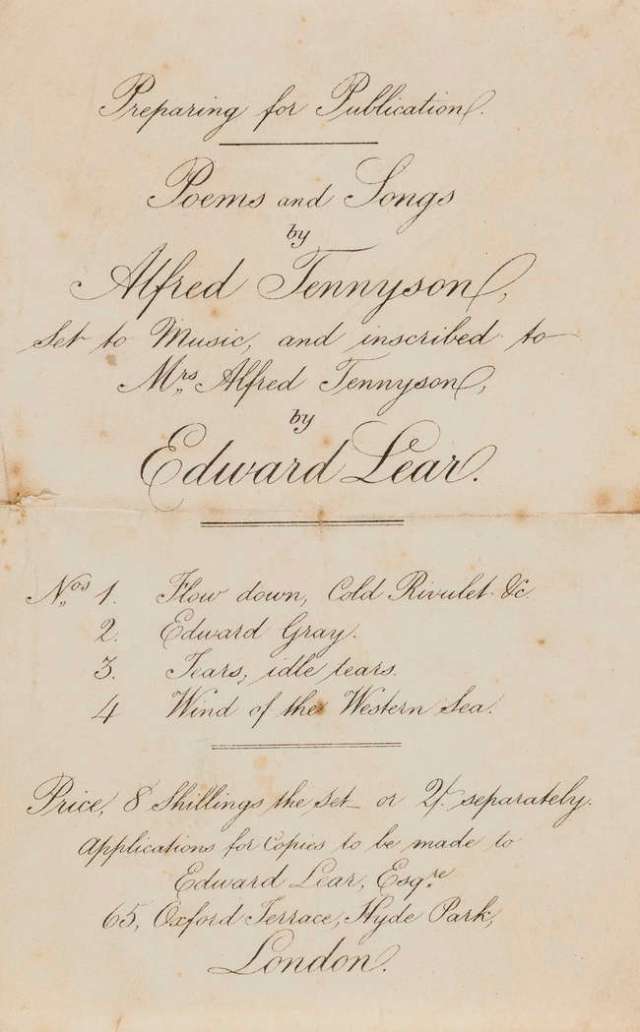 Preparing for Publication.
Poems and Songs
by
Alfred Tennyson,
Set to Music, and inscribed to
Mrs. Alfred Tennyson,
by
Edward Lear.
Nos 1. Flow down, Cold Rivulet &c.
2. Edward Gray.
3. Tears, idle tears.
4 Wind of the Western Sea.
Price, 8 Shillings the set or 2/. separately.
Applications for Copies to be made to
Edward Lear, Esqre
65, Oxford Terrace, Hyde Park,
London.